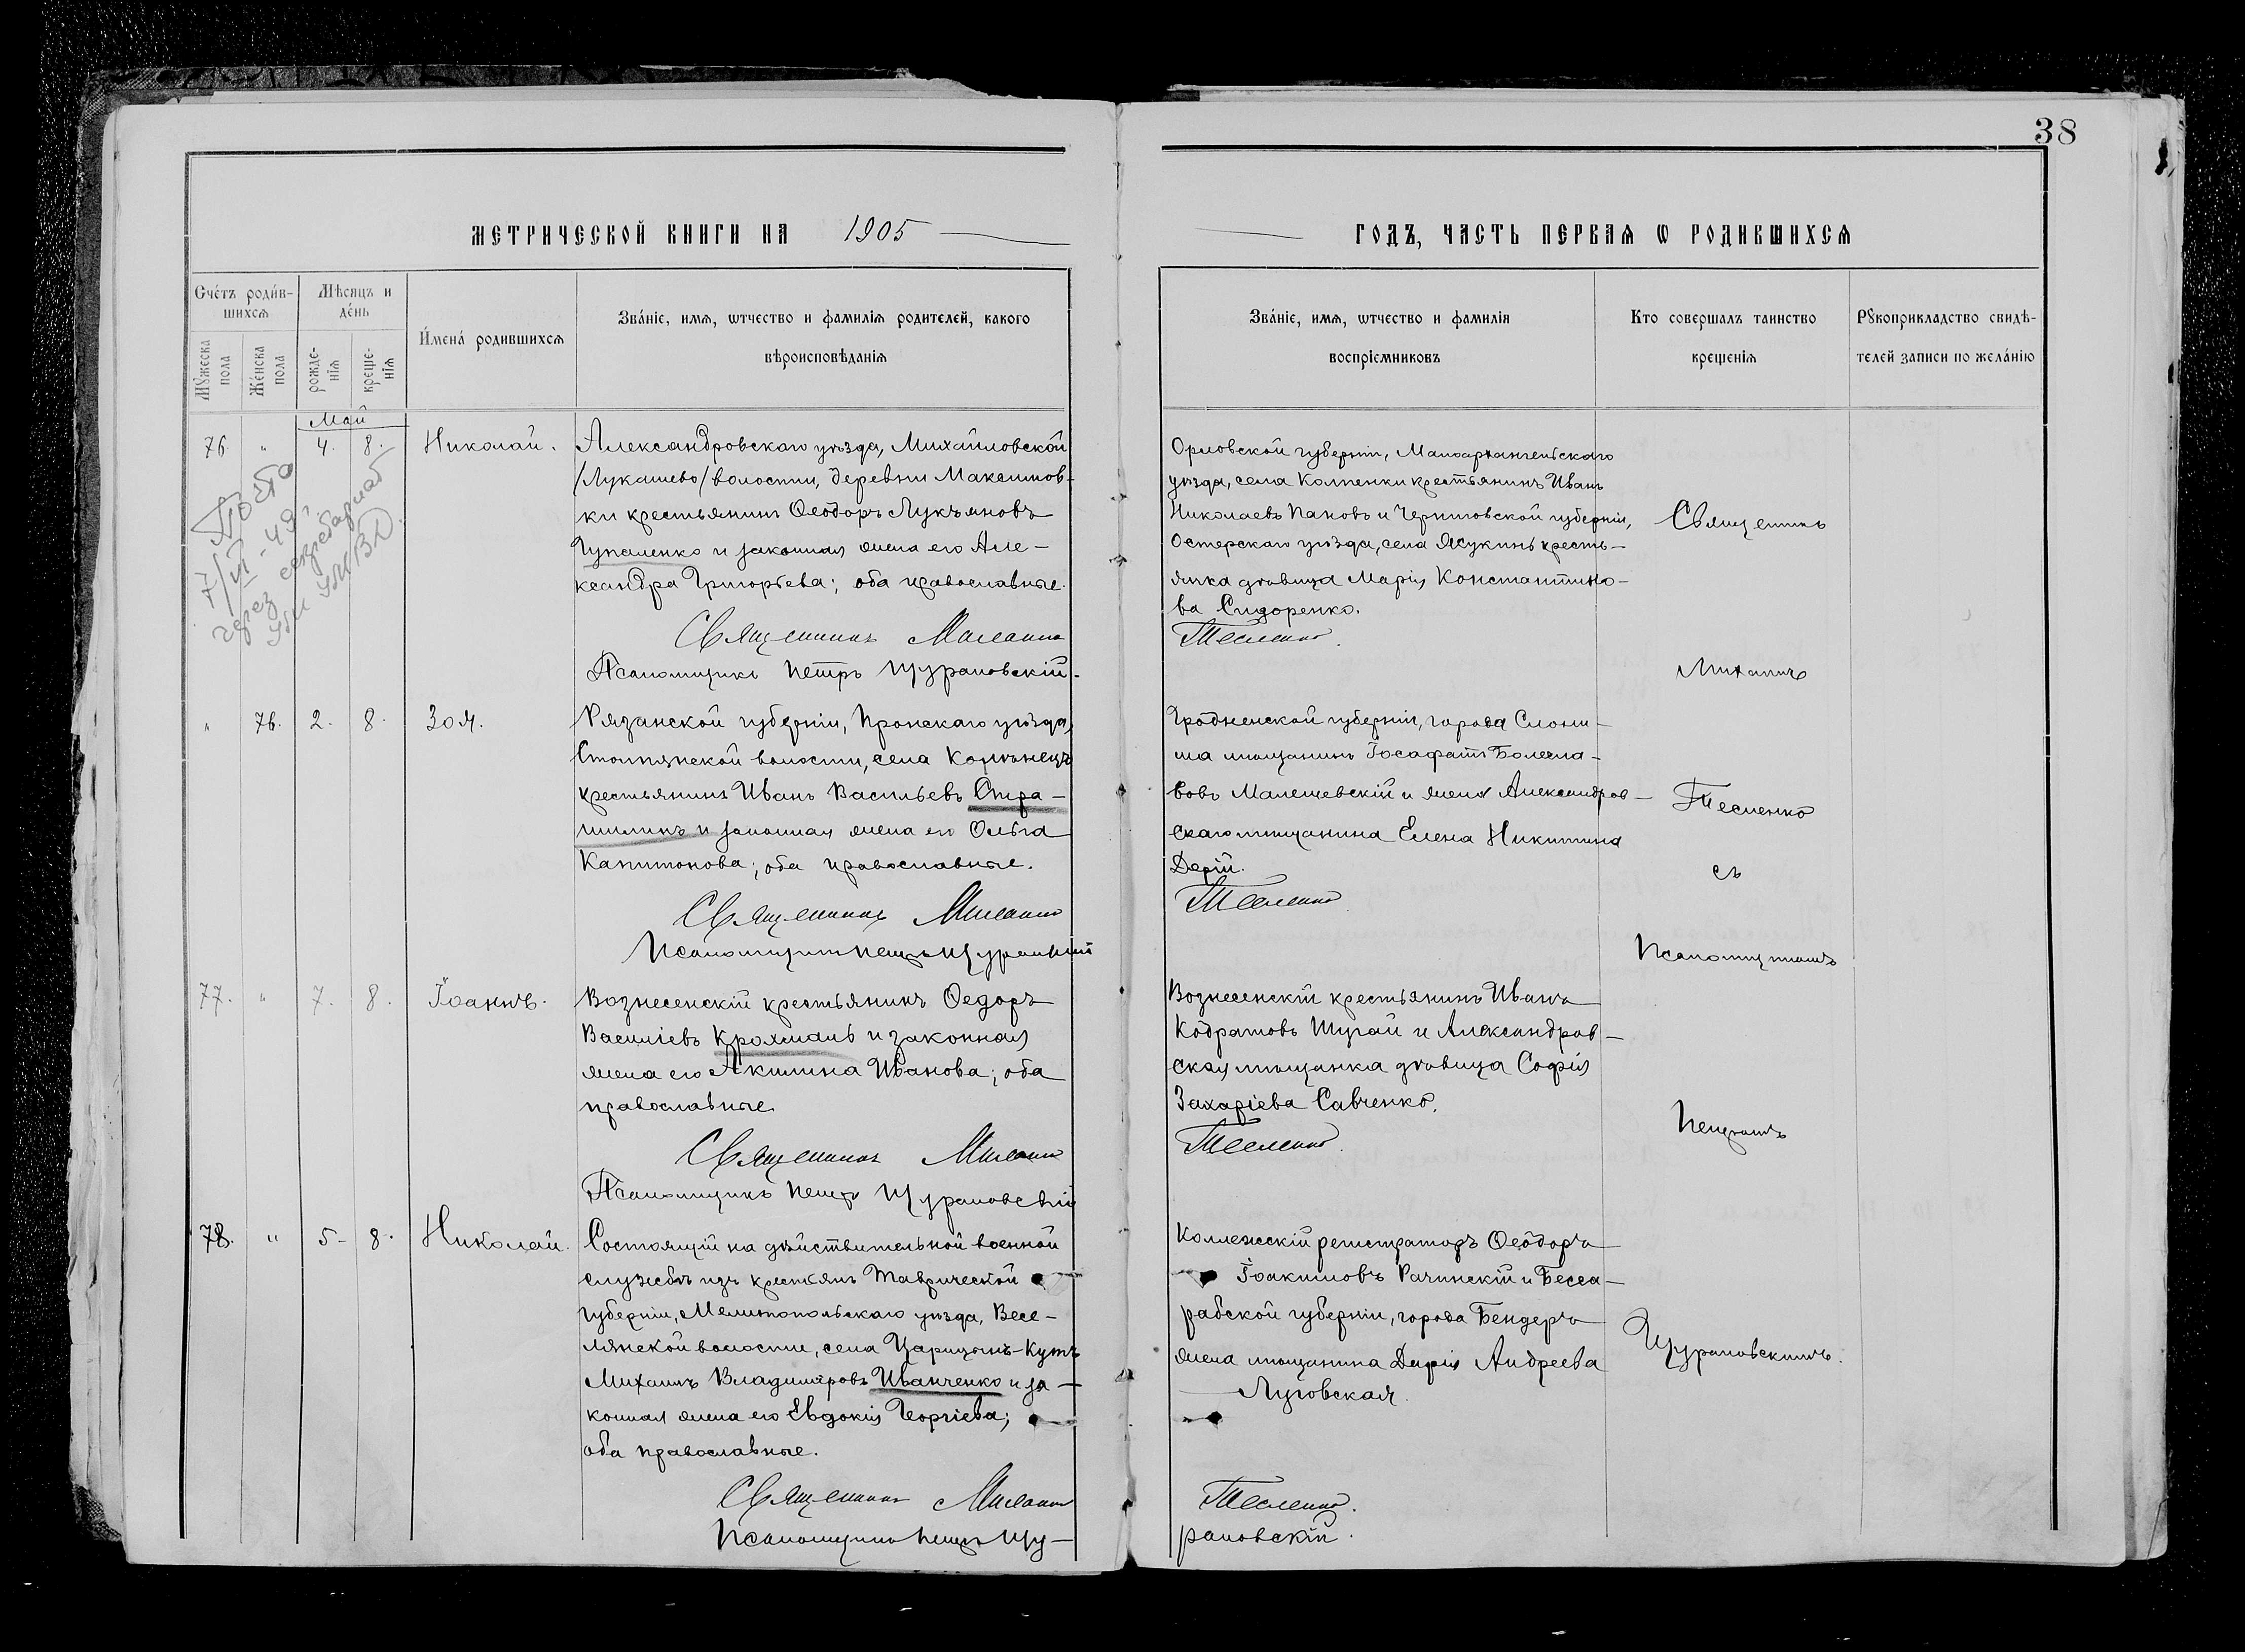 38
МЕТРИЧЕСКОЙ КНИГИ НА 1905
ГОДЪ, ЧАСТЬ ПЕРВАЯ Ѡ РОДИВШИХСЯ
Счéтъ роди́в-
шихсѧ
Мѣсяцъ и
де́нь
Мꙋжеска
пола
Же́нска
пола
рожде-
нїѧ
креще-
нїѧ
И́мена́ родившихсѧ
Зва́нїе, имѧ, ѿтчество и фамилїѧ родителей, какого
вѣроисповѣданїѧ
Зва́нїе, имѧ, ѿтчество и фамилїѧ
воспрїемниковъ
Кто совершалъ таинство
крещенїѧ
Рꙋкоприкладство свидѣ-
телей записи по жела́нїю
Май
76 " 4. 8. Николай.
Александровскаго уѣзда, Михайловской
/Лукашево/ волости, деревни Максимов-
ки крестьянинъ Ѳеодоръ Лукьяновъ
и законная жена его Але-
ксандра Григорьева; оба православные.
Священникъ
Псаломщикъ Петръ Щурановскій.
7/VI-49г.
через
Орловской губерніи, Малоархангельскаго
уѣзда, села Колпенки крестьянинъ Иванъ
Николаевъ Пановъ и Черниговской губерніи,
Остерскаго уѣзда, села Жукинъ кресть-
янка дѣвица Марія Константино-
ва Сидоренко.
Тесленко.
Священникъ
Михаилъ
Тесленко
съ
Псаломщикомъ
Петромъ
Щурановскимъ.
" 76. 2. 8. Зоя.
Рязанской губерніи, Пронскаго уѣзда,
Столпянской волости, села
крестьянинъ Иванъ Васильевъ Спра-
и законная жена его Ольга
Капитонова; оба православные.
Священникъ
Псаломщикъ Петръ Щурановскій
Гродненской губерніи, города Слони-
ма мѣщанинъ Іосафатъ Болесла-
вовъ Малещевскій и жена Александров-
скаго мѣщанина Елена Никитина
Дерій.
Тесленко
77. " 7. 8. Іоаннъ.
Вознесенскій крестьянинъ Ѳедоръ
Василіевъ Крохмаль и законная
жена его Акилина Иванова; оба
православные.
Священникъ
Псаломщикъ Петръ Щурановскій
Вознесенскій крестьянинъ Иванъ
Кодратовъ Шугай и Александров-
ская мѣщанка дѣвица Софія
Захаріева Савченко.
Тесленко.
78. " 5- 8. Николай.
Состоящій на дѣйствительной военной
службѣ изъ крестьянъ Таврической
губерніи, Мелитопольскаго уѣзда, Весе-
лянской волости, села Царицынъ-Кутъ
Михаилъ Владиміровъ Иванченко и за-
конная жена его Евдокія Георгіева;
оба православные.
Священникъ
Псаломщикъ Петръ Щу-
Коллежскій регистраторъ Ѳеодоръ
Іоакимовъ Рачинскій и Бесса-
рабской губерніи, города Бендеръ
жена мѣщанина Дарія Андреева
Луговская.
Тесленко.
рановскій.